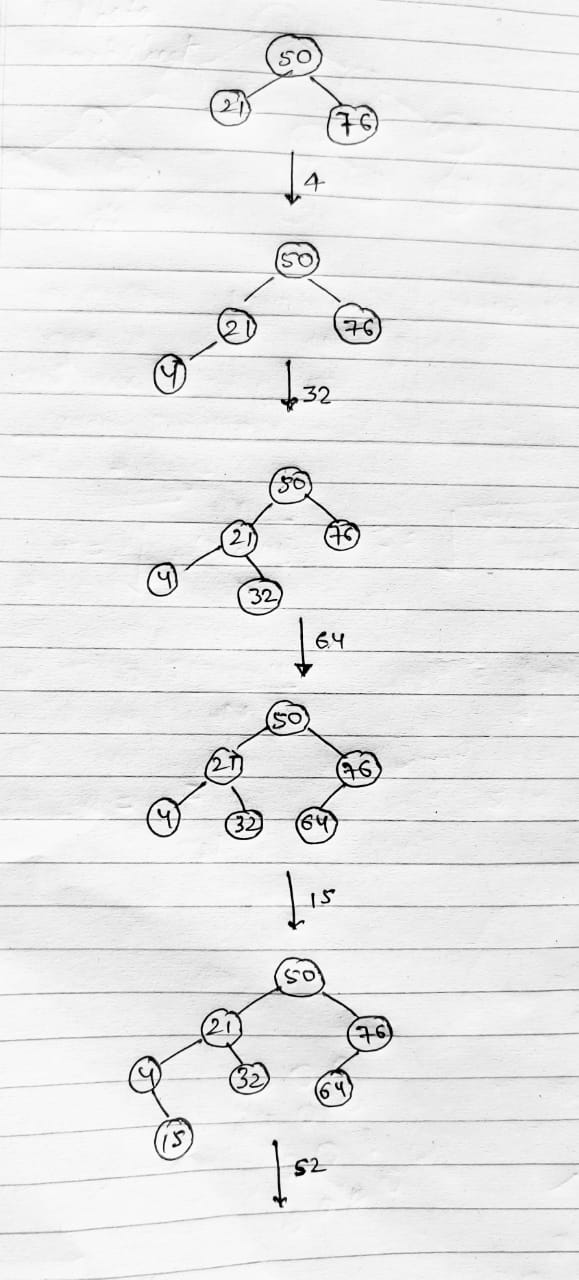 50
21 76
4
50
21 76
4
32
50
21 76
4
32
64
50
21 76
4 32 64
15
50
21 76
4 32 64
15
52